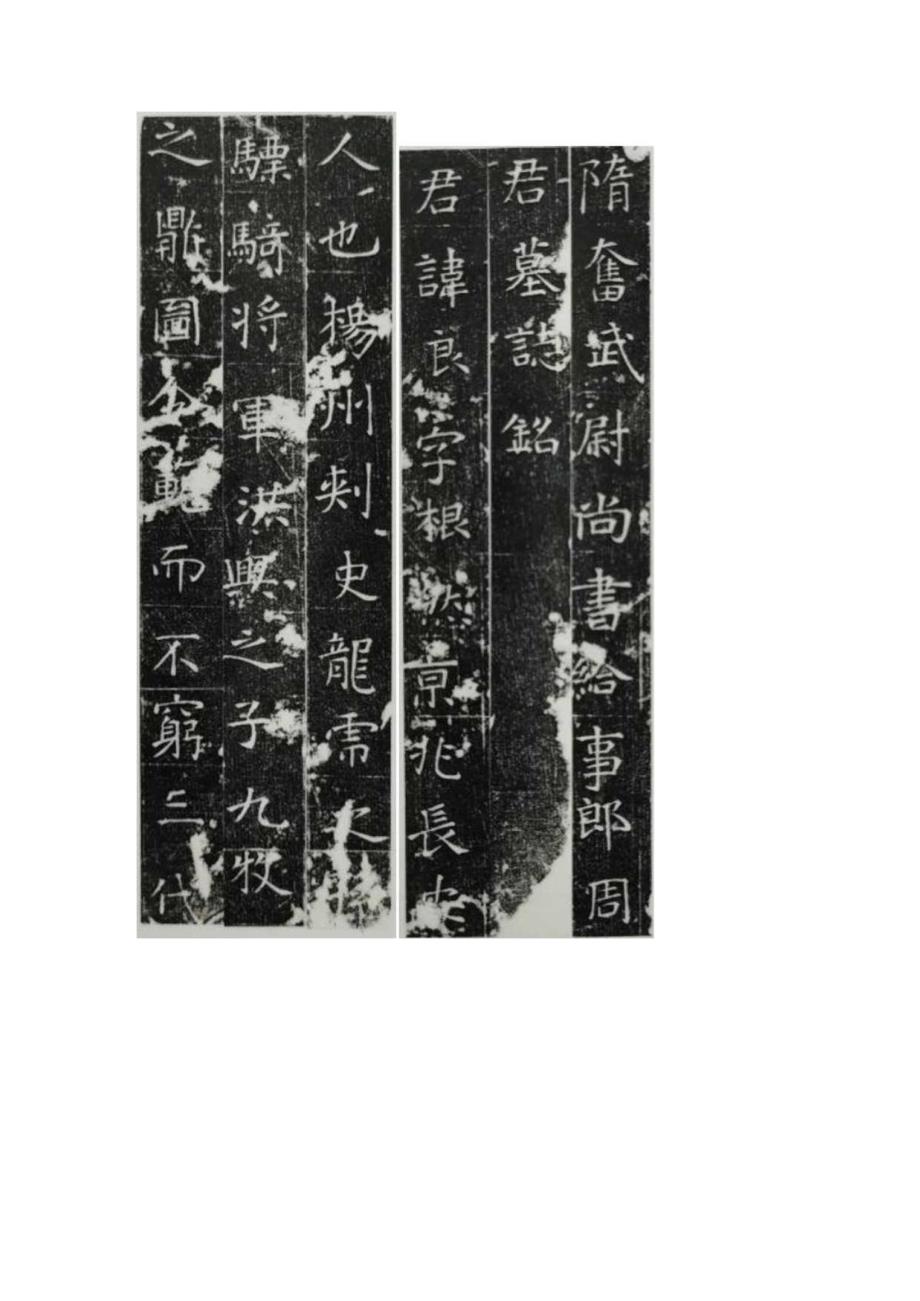 隋奮武尉尚書給事郎周
君墓誌銘
君諱良字根亰兆長安
人也楊州刾史龍需之
驃騎将軍洪興之子九牧
之鼎圖範而不窮三代